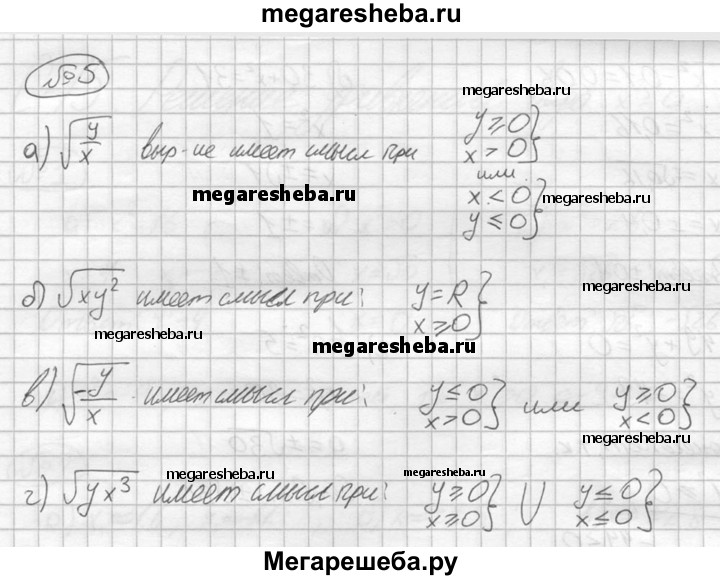 megaresheba.ru
№5
megaresheba.ru
а) √(y/x) выр-ие имеет смысл при y ⩾ 0 }
x > 0 }
или
megaresheba.ru
x < 0 } megaresheba.ru
y ⩽ 0 }
б) √(xy²) имеет смысл при: y = R }
x ⩾ 0 }
megaresheba.ru
megaresheba.ru
в) √(-y/x) имеет смысл при: y ⩽ 0 } или y ⩾ 0 }
x > 0 } x < 0 }
megaresheba.ru
megaresheba.ru megaresheba.ru
г) √(yx³) имеет смысл при: y ⩾ 0 } U y ⩽ 0 }
x ⩾ 0 } x ⩽ 0 }
Мегарешеба.ру